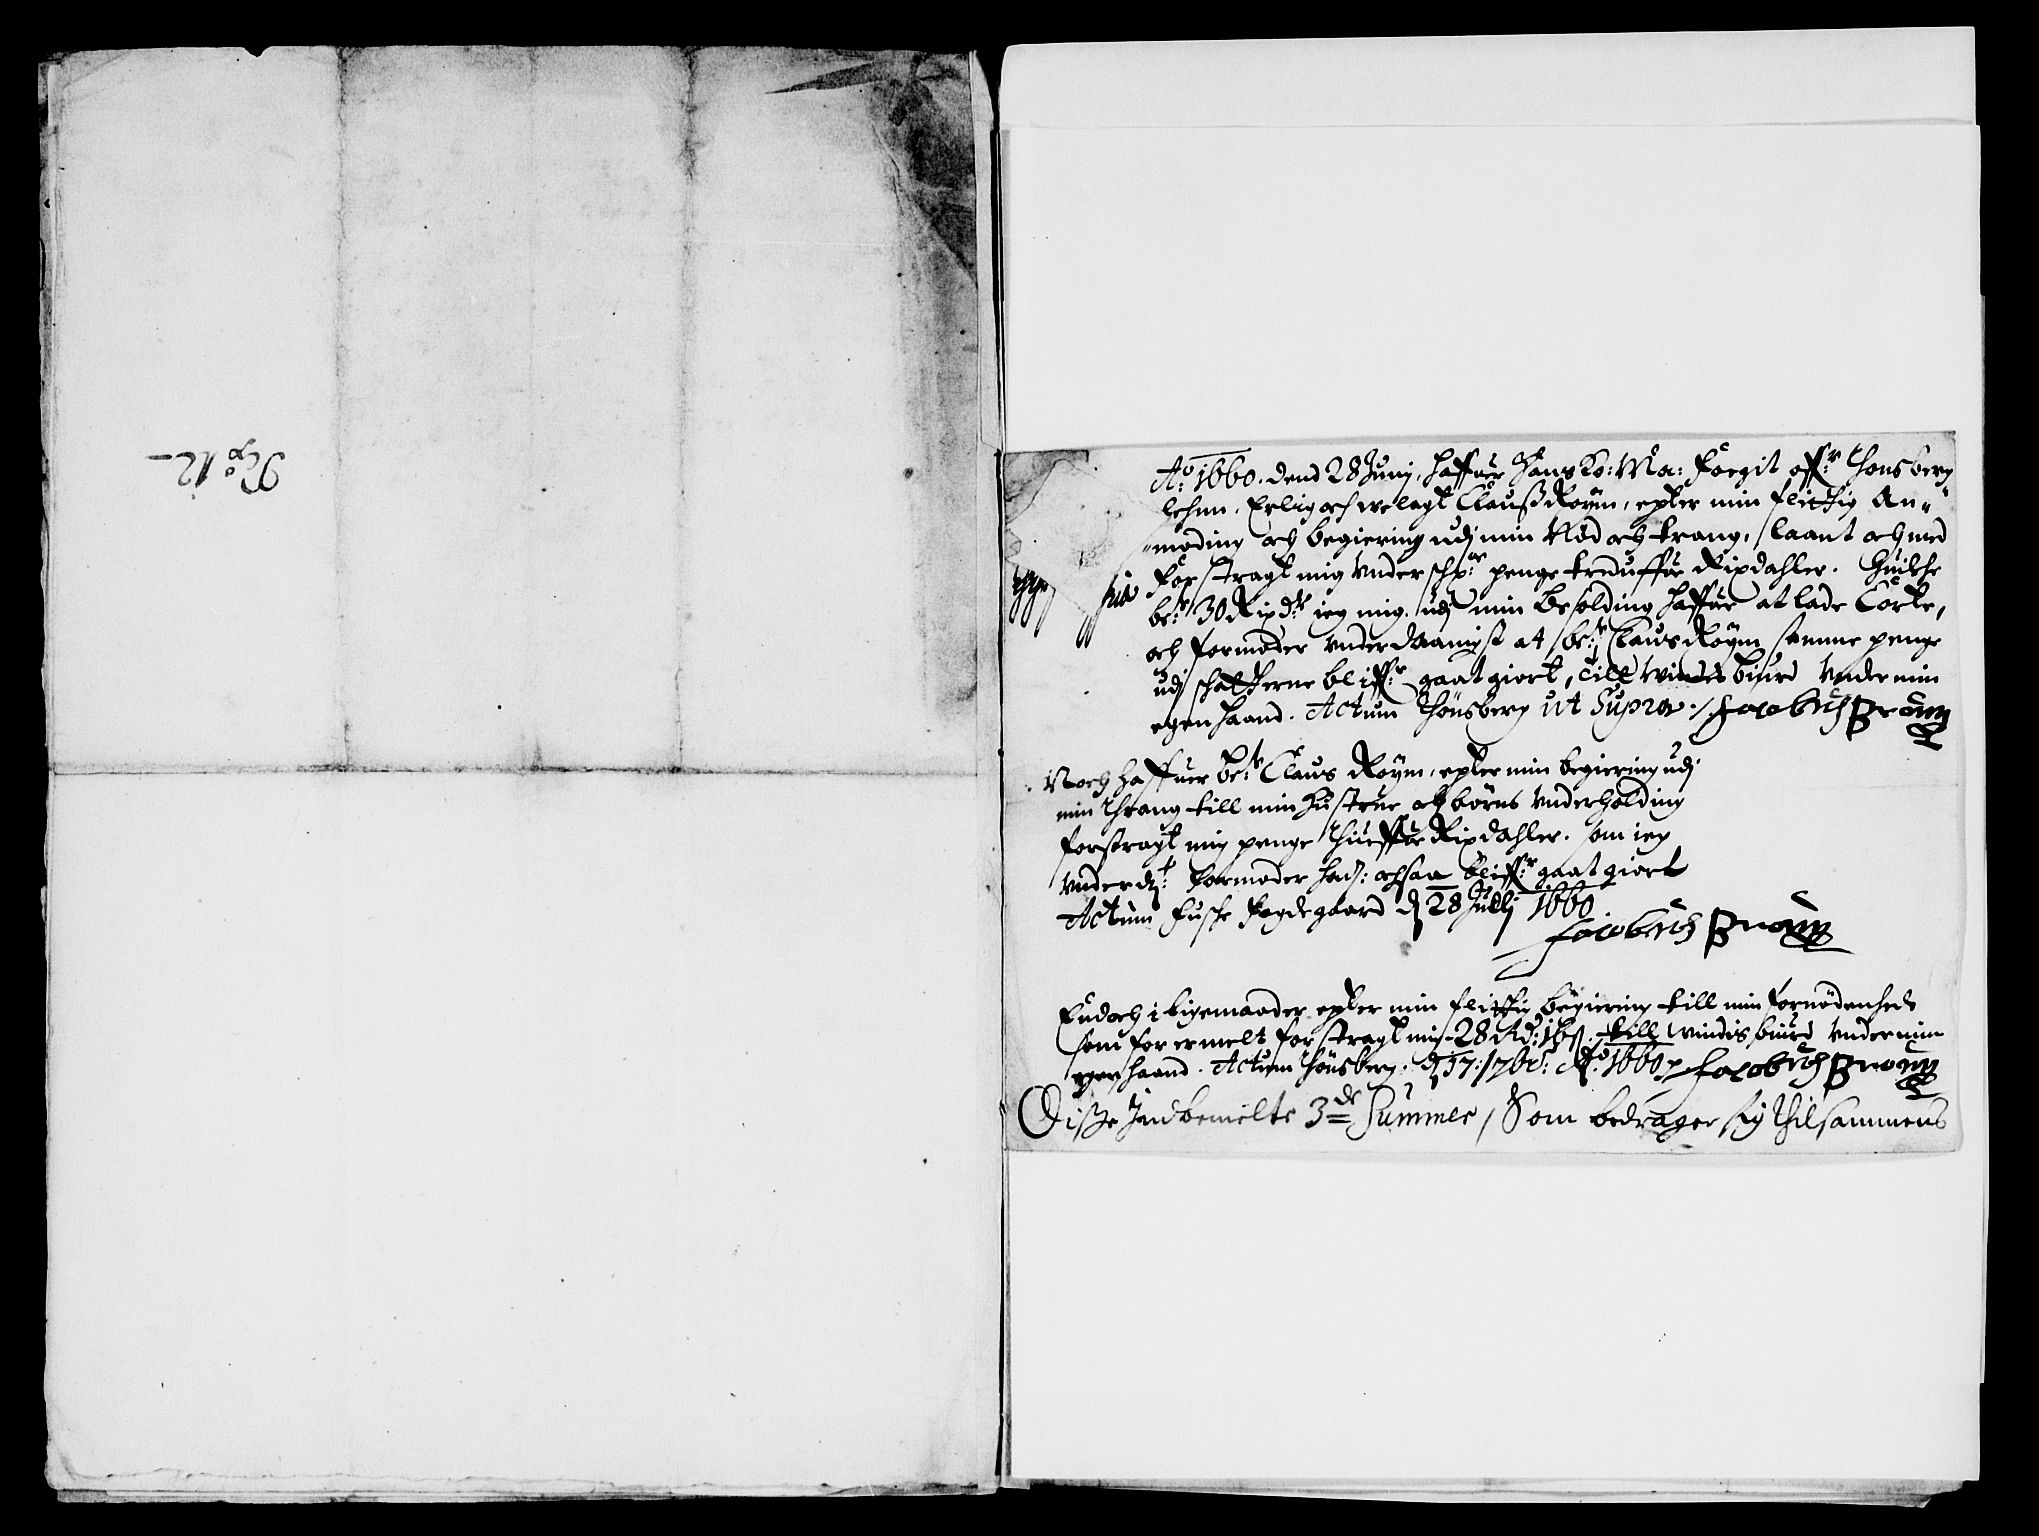 No 12
Ao: 1660. dend 28 Junij, haffuer Hans Ko: Ma: Foegit offr: Thonsberg
lehnn, Erlig och welagt Clauß Röÿm, epter min flittig An-
moding och begiering udj min Nöd och trang, laant och med
for stragt mig vnder schr: penge treduffue Rixdahler. Huilche
be:te 30 Rixdlr ieg mig udj min besolding haffuer at lade Corte,
och formoder vnderdaanigst at be:te Claus Röÿm samme penge
udj schatterne bliffr gaat giort, till windisbiurd vnder min
egen haand. Actum Thönsberg ut Supra ./. Jacob
Noch haffuer be:te Claus Röÿm, epter min begiering udj
min Thrang till min Hustrue och börns vnderholding
forstragt mig penge Thiuffue Rixdahler. som ieg
vnderd:t formoder ochsaa bliffr: gaat giort
Actum Fogdegaard d 28 Julij 1660
Jacob
Endoch i ligemaader epter min flittig begiering till min fornödenhed
som forermelt forstragt mig 28 Rd: till windisbiurd vnder min
egen haand. Actum Thönsberg. d 17: 7br: Ao 1660 Jacob
Diße Indbemelte 3de Summer, Som bedrager sig thilsammens